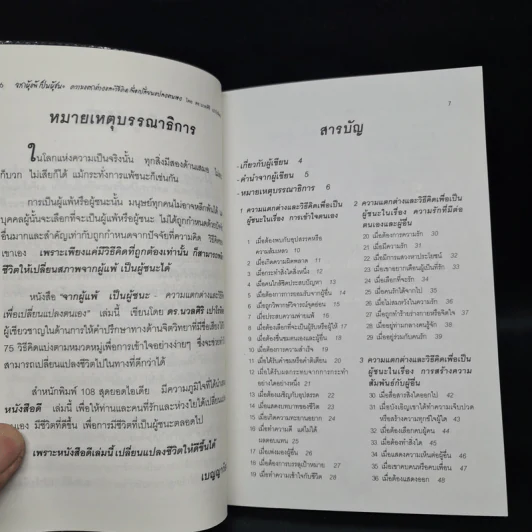 6 จากผู้แพ้เป็นผู้ชนะ
หมายเหตุบรรณาธิการ
ในโลกแห่งความเป็นจริงนั้น ทุกสิ่งมีสองด้านเสมอ
กับวก ไม่เสียก็ได้ แม้กระทั่งการแพ้ชนะก็เช่นกัน
การเป็นผู้แพ้หรือผู้ชนะนั้น มนุษย์ทุกคนไม่อาจหลีก
บุคคลผู้นั้นจะเลือกที่จะเป็นผู้แพ้หรือผู้ชนะ ไม่ได้ถูกกำหนดด้วย
อื่นมากและสำคัญเท่ากับถูกกำหนดจากปัจจัยที่ความคิด วิธี
เขาเอง เพราะเพียงแค่มีวิธีคิดที่ถูกต้องเท่านั้น ก็สามารถ
ชีวิตให้เปลี่ยนสภาพจากผู้แพ้ เป็นผู้ชนะได้
หนังสือ "จากผู้แพ้ เป็นผู้ชนะ - ความแตกต่างและวิธี
เพื่อเปลี่ยนแปลงตนเอง" เล่มนี้ เขียนโดย ดร.นวลศิริ เปาโรหิตย์
ผู้เชี่ยวชาญในด้านการให้คำปรึกษาทางด้านจิตวิทยาที่มีชื่อเสียง
75 วิธีคิดแบ่งตามหมวดหมู่เพื่อการเข้าใจอย่างง่ายๆ ซึ่งจะช่วย
สามารถเปลี่ยนแปลงชีวิตไปในทางที่ดีกว่าได้
สำนักพิมพ์ 108 สุดยอดไอเดีย มีความภูมิใจที่ได้นำ
หนังสือดี เล่มนี้ เพื่อให้ท่านและคนที่รักและห่วงใยได้เปลี่ยน
ตนเอง มีชีวิตที่ดีขึ้น เพื่อการมีชีวิตที่เป็นผู้ชนะตลอดไป
เพราะหนังสือดีเล่มนี้ เปลี่ยนแปลงชีวิตให้ดีขึ้นได้
7
สารบัญ
- เกี่ยวกับผู้เขียน 4
- คำนำจากผู้เขียน 5
- หมายเหตุบรรณาธิการ 6
1 ความแตกต่างและวิธีคิดเพื่อเป็น
ผู้ชนะในเรื่อง การเข้าใจตนเอง
1 เมื่อต้องพบกับอุปสรรคหรือ
ความล้มเหลว 10
2 เมื่อเกิดความผิดพลาด 11
3 เมื่อกระทำสิ่งใดสิ่งหนึ่ง 12
4 เมื่อคนใกล้ชิดประสบปัญหา 13
5 เมื่อต้องการการยอมรับจากผู้อื่น 14
6 เมื่อถูกวิพากษ์วิจารณ์จุดอ่อน 15
7 เมื่อประสบความพ่ายแพ้ 16
8 เมื่อต้องเลือกที่จะเป็นผู้รับหรือผู้ให้ 17
9 เมื่อต้องชื่นชมตนเองและผู้อื่น 18
10 เมื่อต้องการความสำเร็จ 19
11 เมื่อได้รับคำชมหรือคำติเตียน 20
12 เมื่อได้รับผลกระทบจากการกระทำ
อย่างใดอย่างหนึ่ง 21
13 เมื่อต้องเผชิญกับอุปสรรค 22
14 เมื่อแสดงบทบาทของชีวิต 23
15 เมื่อเกิดความทะยานอยาก 24
16 เมื่อทำความดี แต่ไม่ได้
ผลตอบแทน 25
17 เมื่อเพ่งมองผู้อื่น 26
18 เมื่อต้องการบรรลุเป้าหมาย 27
19 เมื่อทำความเข้าใจกับชีวิต 28
2 ความแตกต่างและวิธีคิดเพื่อเป็น
ผู้ชนะในเรื่อง ความรักที่มีต่อ
ตนเองและผู้อื่น
20 เมื่อต้องการความรัก 30
21 เมื่อมีความรัก 31
22 เมื่อมีการแสวงหาประโยชน์ 32
23 เมื่อเขาอยากเตือนผู้เป็นที่รัก 33
24 เมื่อเลือกที่จะรัก 34
25 เมื่อคนรักได้จากไป 35
26 เมื่อไม่สมหวังในความรัก 36
27 เมื่อถูกทำร้ายร่างกายหรือจิตใจ 37
28 เมื่ออยู่ท่ามกลางคนรู้จัก 38
29 เมื่ออยู่ร่วมกับคนรัก 39
3 ความแตกต่างและวิธีคิดเพื่อเป็น
ผู้ชนะในเรื่อง การสร้างความ
สัมพันธ์กับผู้อื่น
30 เมื่อสื่อสารสิ่งใดออกไป 42
31 เมื่อบังเอิญเขาได้ทำความเจ็บปวด
หรือสร้างความทุกข์ใจให้ผู้ใด 43
32 เมื่อต้องเลือกคบผู้คน 44
33 เมื่อต้องทำสิ่งใด 45
34 เมื่อแสดงความเห็นต่อผู้อื่น 46
35 เมื่อเขาคบคนหรือคบเพื่อน 47
36 เมื่อต้องแสดงออก 48